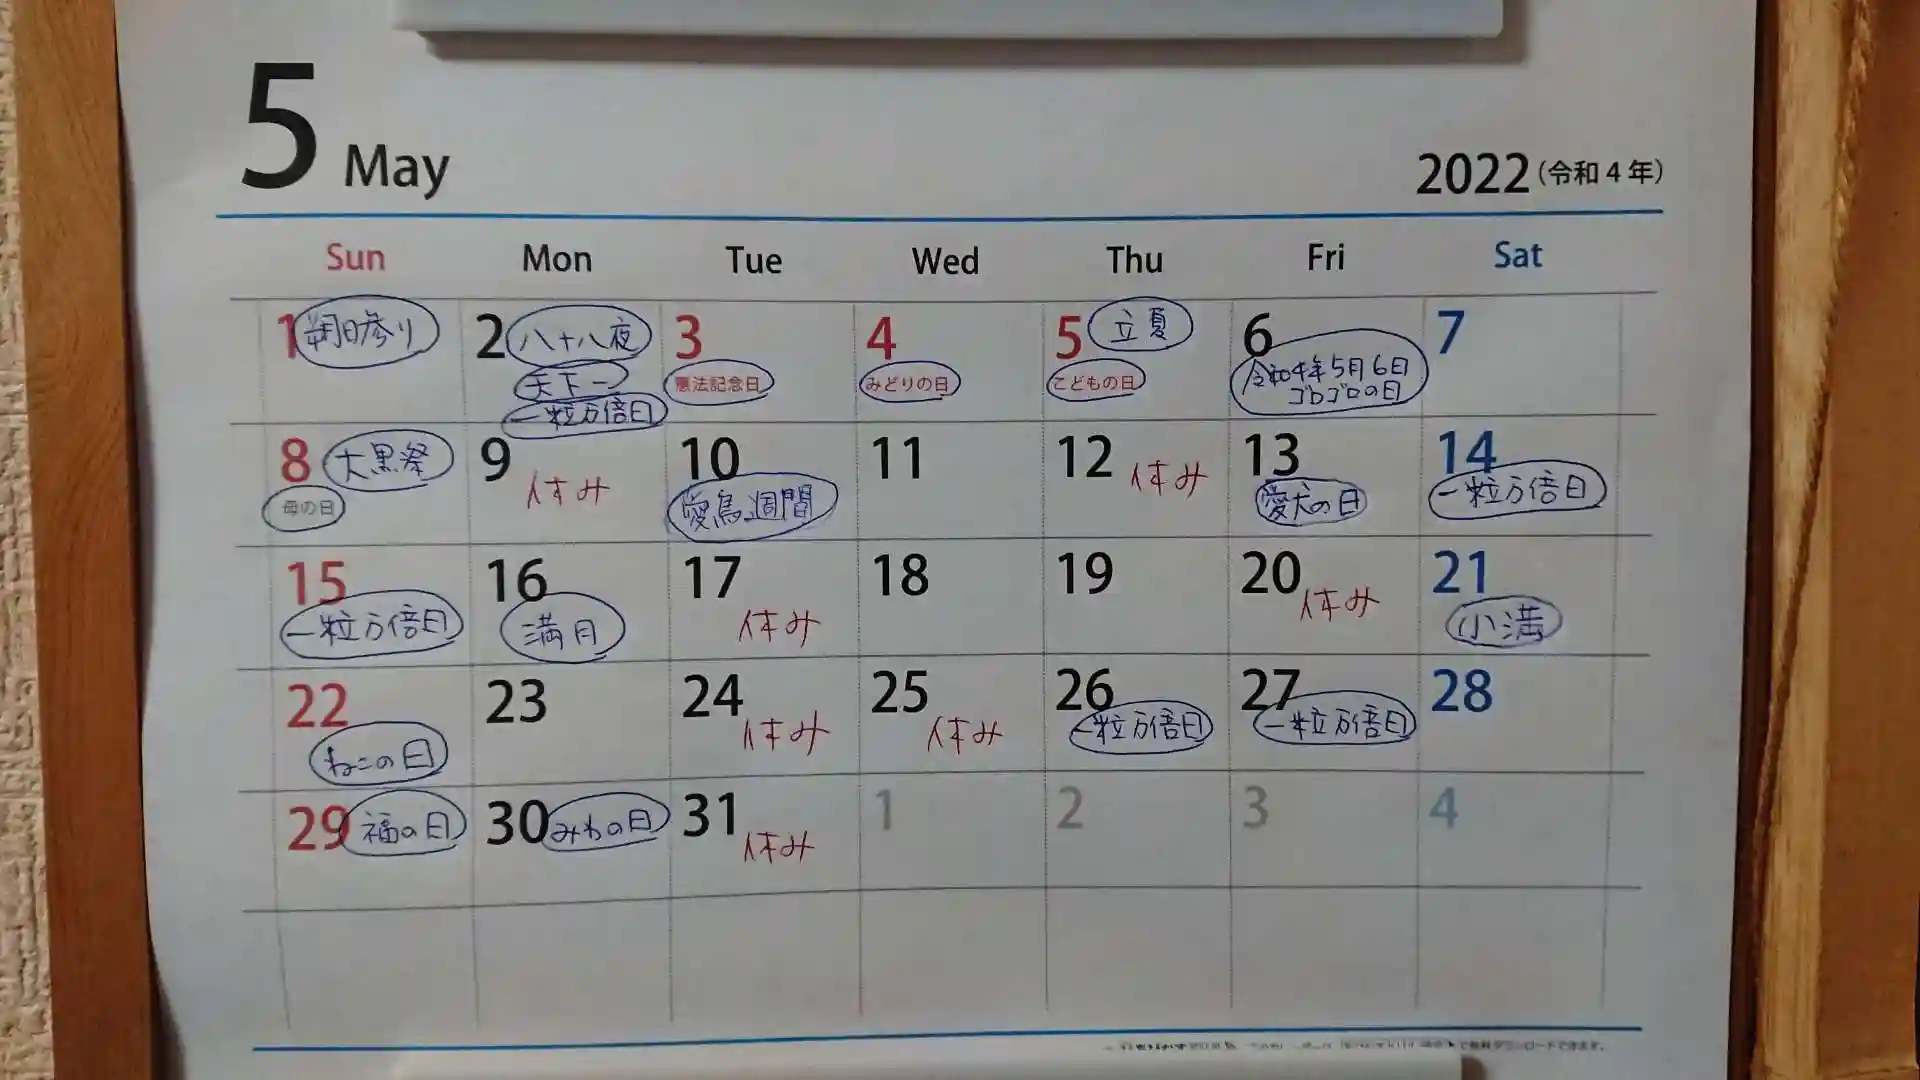 5 May
2022(令和4年)
Sun Mon Tue Wed Thu Fri Sat
1 朔日参り
2 八十八夜
天下一
一粒万倍日
3
憲法記念日
4
みどりの日
5 立夏
こどもの日
6
令和4年5月6日
ゴロゴロの日
7
8 大黒祭
母の日
9 休み
10
愛鳥週間
11
12 休み
13
愛犬の日
14
一粒万倍日
15
一粒万倍日
16
満月
17 休み
18
19
20 休み
21
小満
22
ねこの日
23
24 休み
25 休み
26
一粒万倍日
27
一粒万倍日
28
29 福の日
30 みわの日
31 休み
1
2
3
4
で無料ダウンロードできます。